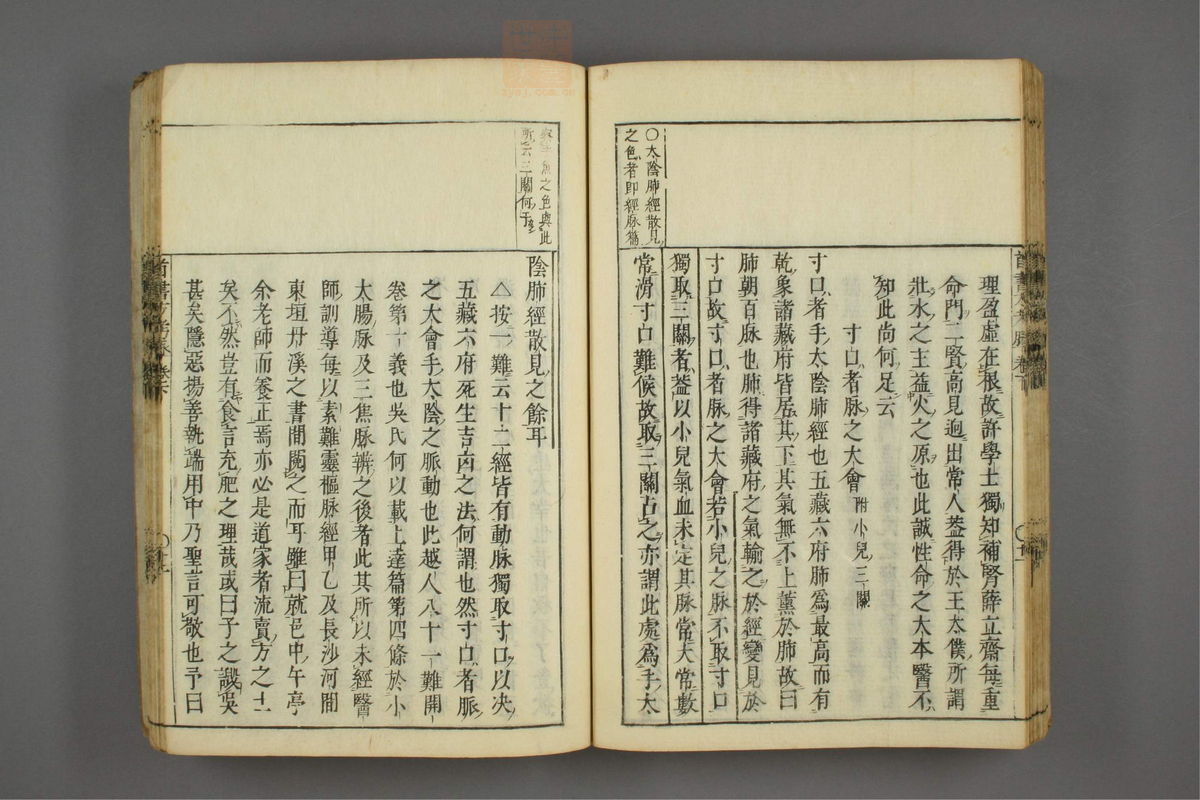 理盈虛在根故許學士獨知補腎薛立齋每重
命門二賢高見迥出常人蓋得於王太僕所謂
壯水之主益火之原也此誠性命之大本醫不
知此尚何足云
寸口者脉之大會 附小兒三關
寸口者手太陰肺經也五藏六府肺爲最高而有
乾象諸藏府皆居其下其氣無不上薰於肺故曰
肺朝百脉也肺得諸藏府之氣輸之於經變見於
寸口故寸口者脉之大會若小兒之脉不取寸口
獨取三關者蓋以小兒氣血未定其脉常大常數
常滑寸口難候故取三關占之亦謂此處爲手太
〇太陰肺經散見
之色者即經脉篇
魚之色與此
所云三關何予
陰肺經散見之餘耳
△按一難云十二經皆有動脉獨取寸口以决
五藏六府死生吉凶之法何謂也然寸口者脈
之大會手太陰之脈動也此越人八十一難開
卷第十義也吳氏何以載上達篇第四條於小
太腸脉及三焦脉辨之後者此其所以未經醫
師訓導每以素難靈樞脉經甲乙及長沙河間
東垣丹溪之書間閱之而耳雖曰就邑中午亭
余老師而養正焉亦必是道家者流賣方之士
矣不然豈有食言充肥之理哉或曰子之譏吳
甚矣隱惡揚善執端用中乃聖言可敬也予曰